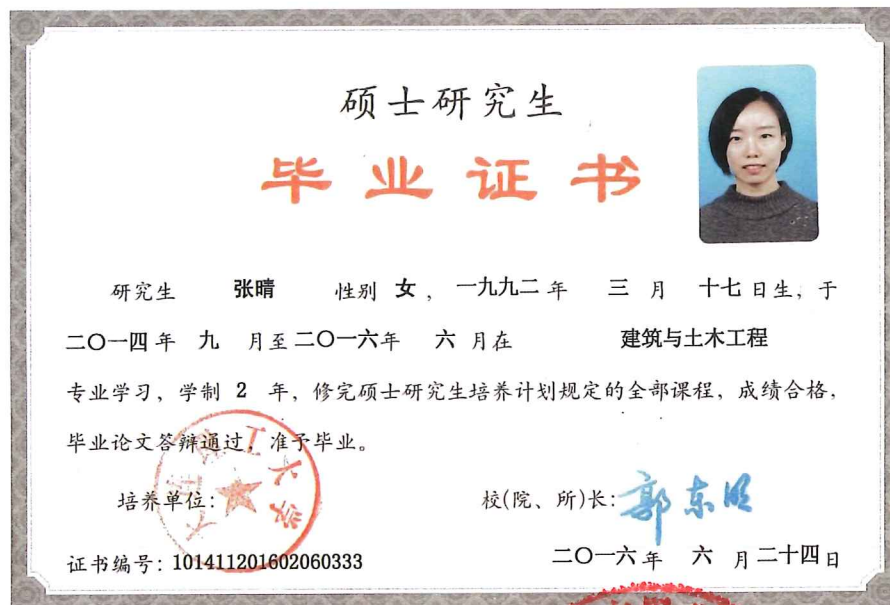 硕士研究生
毕业证书
研究生 张晴 性别 女 ,一九九二 年 三 月 十七 日生,于
二〇一四年 九 月至二〇一六年 六 月在 建筑与土木工程
专业学习,学制 2 年,修完硕士研究生培养计划规定的全部课程,成绩合格,
毕业论文答辩通过,准予毕业。
大连理工大学
培养单位: 校(院、所)长:郭东明
证书编号:101411201602060333 二〇一六年 六 月二十四日